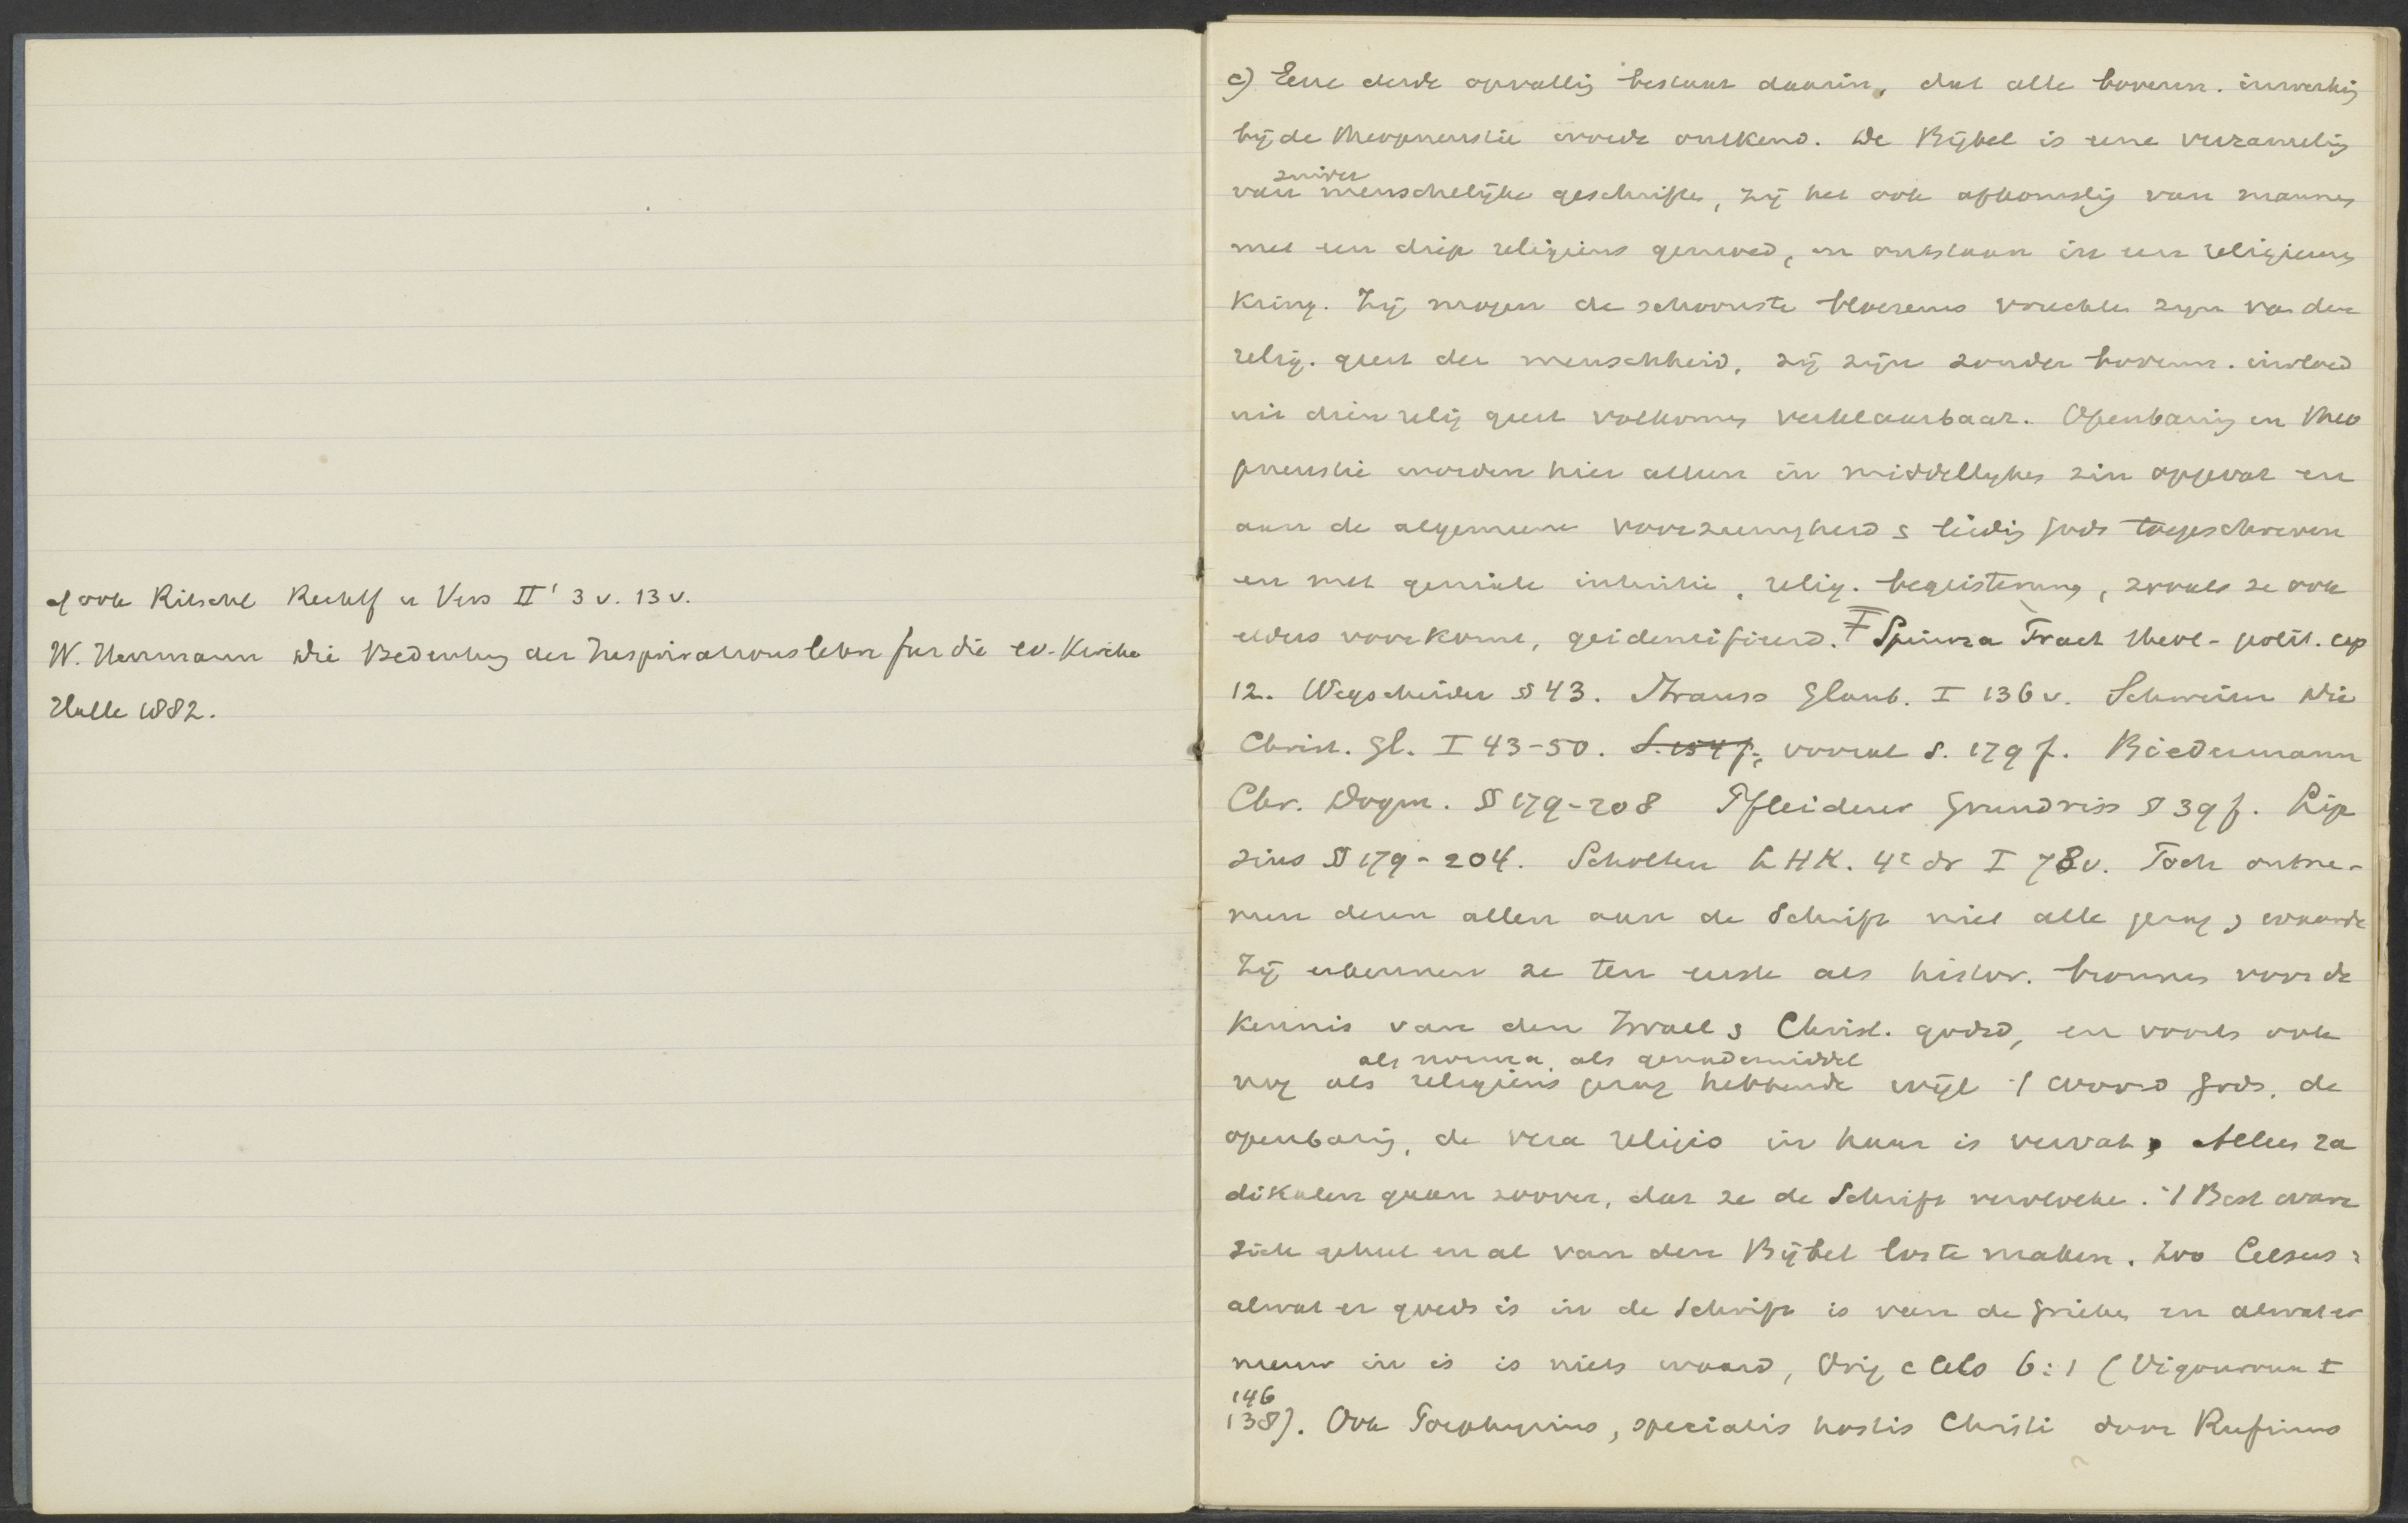 cf ook Ritschl Rechtf u Vers II¹ 3 v. 13 v.
W. Herrmann Die Bedeutung der Inspirationslehre fur die ev. Kirche
Halle 1882.
c) Eene derde opvatting bestaat daarin, dat alle bovenn. inwerking
bij de theopneustie wordt ontkend. De Bijbel is eene verzameling
zuiver
van menschelijke geschriften, zij het ook afkomstig van mannen
met een diep religieus gemoed, en ontstaan in een religieuzen
kring. Zij mogen de schoonste bloesems vruchten zijn van den
relig. geest der menschheid, zij zijn zonder bovenn. invloed
uit dien relig geest volkomen verklaarbaar. Openbaring en theo
pneustie worden hier alleen in middellijken zin opgevat en
aan de algemeene voorzienigheid s leiding Gods toegeschreven
en met geniale intuitie, relig. begeistering, zooals ze ook
elders voorkomt, geidentifieerd. Ŧ Spinoza Tract theol-polit. cap
12. Wegscheider § 43. Strauss Glaub. I 136 v. Schweizer Die
Christ. Gl. I 43-50. S. 154 f., vooral S. 179 f. Biedermann
Chr. Dogm. §§ 179-208 Pfleiderer Grundriss § 39 f. Lip
sius §§ 179-204. Scholten LHK. 4e dr I 78 v. Toch ontne-
men dezen allen aan de Schrift niet alle gezag s waarde
Zij erkennen ze ten eerste als histor. bronnen voor de
kennis van den Israel s Christ. godsd, en voorts ook
als norma, als genademiddel
nog als religieus gezag hebbende wijl 't woord Gods, de
openbaring, de vera religio in haar is vervat, Alleen ra
dikalen gaan zoover, dat ze de Schrift vervloeken. 't Best ware
zich geheel en al van den Bijbel los te maken. Zoo Celsus:
alwat er goeds is in de Schrift is van de Grieken en alwat er
nieuw in is is niets waard, Orig c Cels 6:1 (Vigouroux I
146
138). Ook Porphyrius, specialis hostis Christi door Rufinus